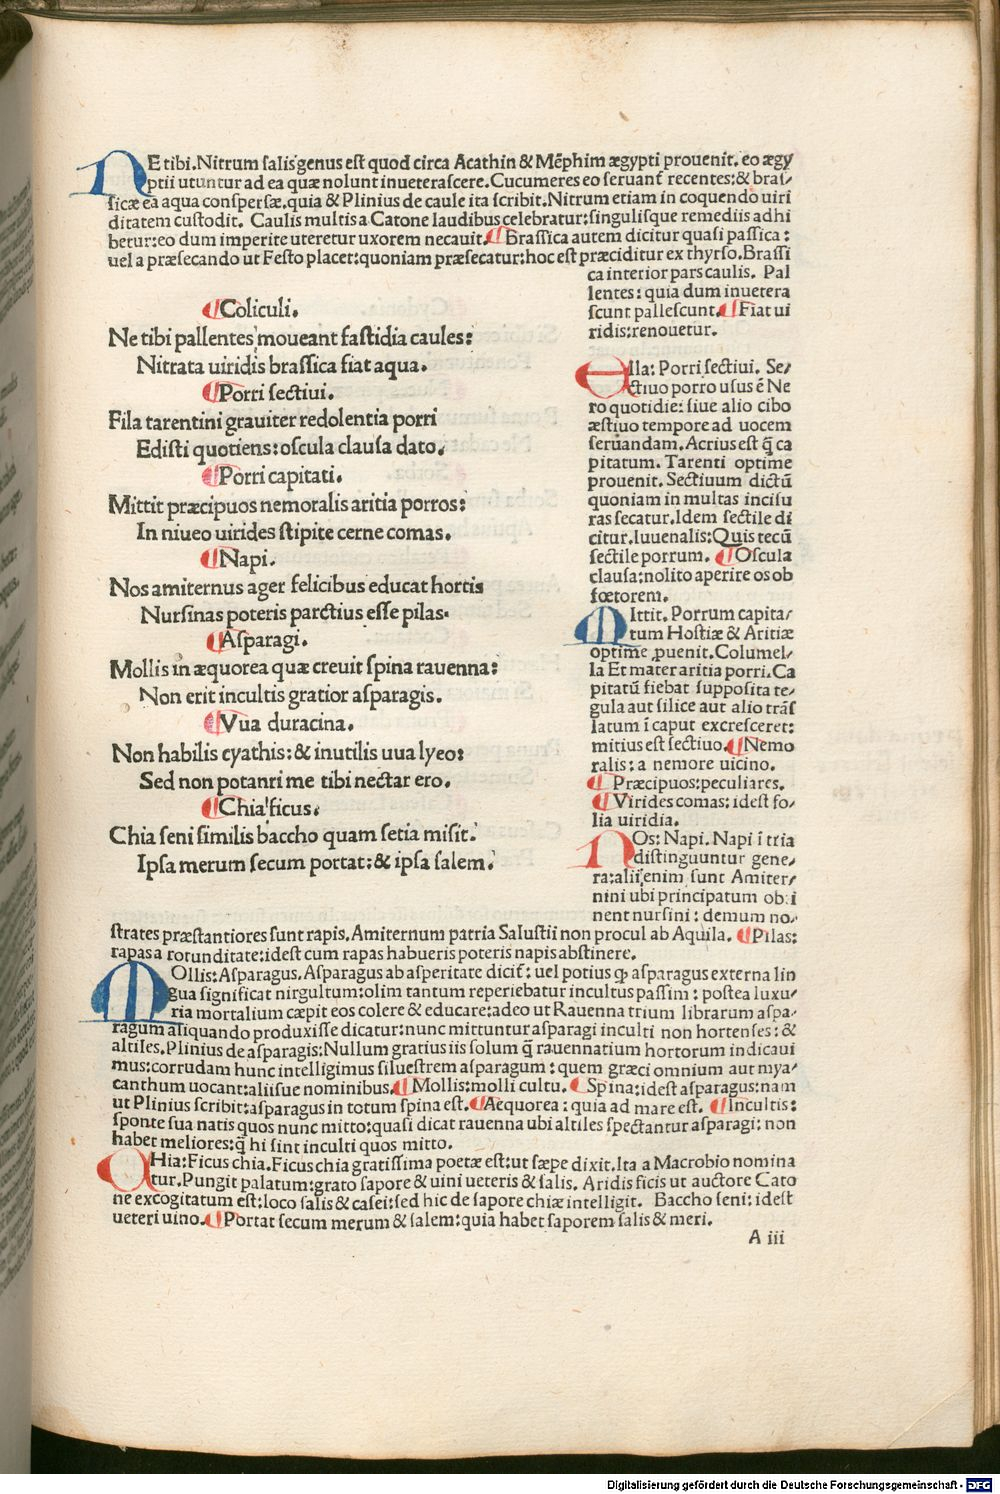 NE tibi. Nitrum salis genus est quod circa Acathin & Mẽphim ægypti prouenit. eo ægy
ptii utuntur ad ea quæ nolunt inueterascere. Cucumeres eo seruanť recentes: & bras⸗
sicæ ea aqua conspersæ. quia & Plinius de caule ita scribit. Nitrum etiam in coquendo uiri
ditatem custodit. Caulis multis a Catone laudibus celebratur: singulisque remediis adhi
betur: eo dum imperite uteretur uxorem necauit. ¶ Brassica autem dicitur quasi passica:
uel a præsecando ut Festo placet: quoniam præsecatur: hoc est præciditur ex thyrso. Brassi
ca interior pars caulis. Pal
lentes: quia dum inuetera
scunt pallescunt. ¶ Fiat ui
ridis: renouetur.
¶ Coliculi.
Ne tibi pallentes moueant fastidia caules:
Nitrata uiridis brassica fiat aqua.
¶ Porri sectiui.
Fila tarentini grauiter redolentia porri
Edisti quotiens: oscula clausa dato.
¶ Porri capitati.
Mittit præcipuos nemoralis aritia porros:
In niueo uirides stipite cerne comas.
¶ Napi.
Nos amiternus ager felicibus educat hortis
Nursinas poteris parctius esse pilas.
¶ Asparagi.
Mollis in æquorea quæ creuit spina rauenna:
Non erit incultis gratior asparagis.
¶ Vua duracina.
Non habilis cyathis: & inutilis uua lyeo:
Sed non potanri me tibi nectar ero.
¶ Chia ficus.
Chia seni similis baccho quam setia misit.
Ipsa merum secum portat: & ipsa salem.
Ella: Porri sectiui. Se⸗
ctiuo porro usus ẽ Ne
ro quotidie: siue alio cibo
æstiuo tempore ad uocem
seruandam. Acrius est q̃ ca
pitatum. Tarenti optime
prouenit. Sectiuum dictũ
quoniam in multas incisu
ras secatur. Idem sectile di
citur. Iuuenalis: Quis tecũ
sectile porrum. ¶ Oscula
clausa: nolito aperire os ob
fœtorem.
MIttit. Porrum capita⸗
tum Hostiæ & Aritiæ
optime ꝓuenit. Columel⸗
la Et mater aritia porri. Ca
pitatũ fiebat supposita te⸗
gula aut silice aut alio trãs
latum ĩ caput excresceret:
mitius est sectiuo. ¶ Nemo
ralis: a nemore uicino.
¶ Præcipuos: peculiares.
¶ Virides comas: idest fo⸗
lia uiridia.
NOs: Napi. Napi ĩ tria
distinguuntur gene⸗
ra: alii enim sunt Amiter⸗
nini ubi principatum obti
nent nursini: demum no⸗
strates præstantiores sunt rapis. Amiternum patria Salustii non procul ab Aquila. ¶ Pilas:
rapas a rotunditate: idest cum rapas habueris poteris napis abstinere.
MOllis: Asparagus. Asparagus ab asperitate diciť: uel potius ꝙ asparagus externa lin
gua significat nirgultum: olim tantum reperiebatur incultus passim: postea luxu⸗
ria mortalium cæpit eos colere & educare: adeo ut Rauenna trium librarum aspa⸗
ragum aliquando produxisse dicatur: nunc mittuntur asparagi inculti non hortenses: &
altiles. Plinius de asparagis: Nullum gratius iis solum q̃ rauennatium hortorum indicaui
mus: corrudam hunc intelligimus siluestrem asparagum: quem græci omnium aut mya⸗
canthum uocant: aliisue nominibus. ¶ Mollis: molli cultu. ¶ Spina: idest asparagus: nam
ut Plinius scribit: asparagus in totum spina est. ¶ Aequorea: quia ad mare est. ¶ Incultis:
sponte sua natis quos nunc mitto: quasi dicat rauenna ubi altiles spectantur asparagi: non
habet meliores: q̃ hi sint inculti quos mitto.
CHia: Ficus chia. Ficus chia gratissima poetæ est: ut sæpe dixit. Ita a Macrobio nomina
tur. Pungit palatum: grato sapore & uini ueteris & salis. Aridis ficis ut auctore Cato
ne excogitatum est: loco salis & casei: sed hic de sapore chiæ intelligit. Baccho seni: idest
ueteri uino. ¶ Portat secum merum & salem: quia habet saporem salis & meri.
A iii
Digitalisierung gefördert durch die Deutsche Forschungsgemeinschaft - DFG